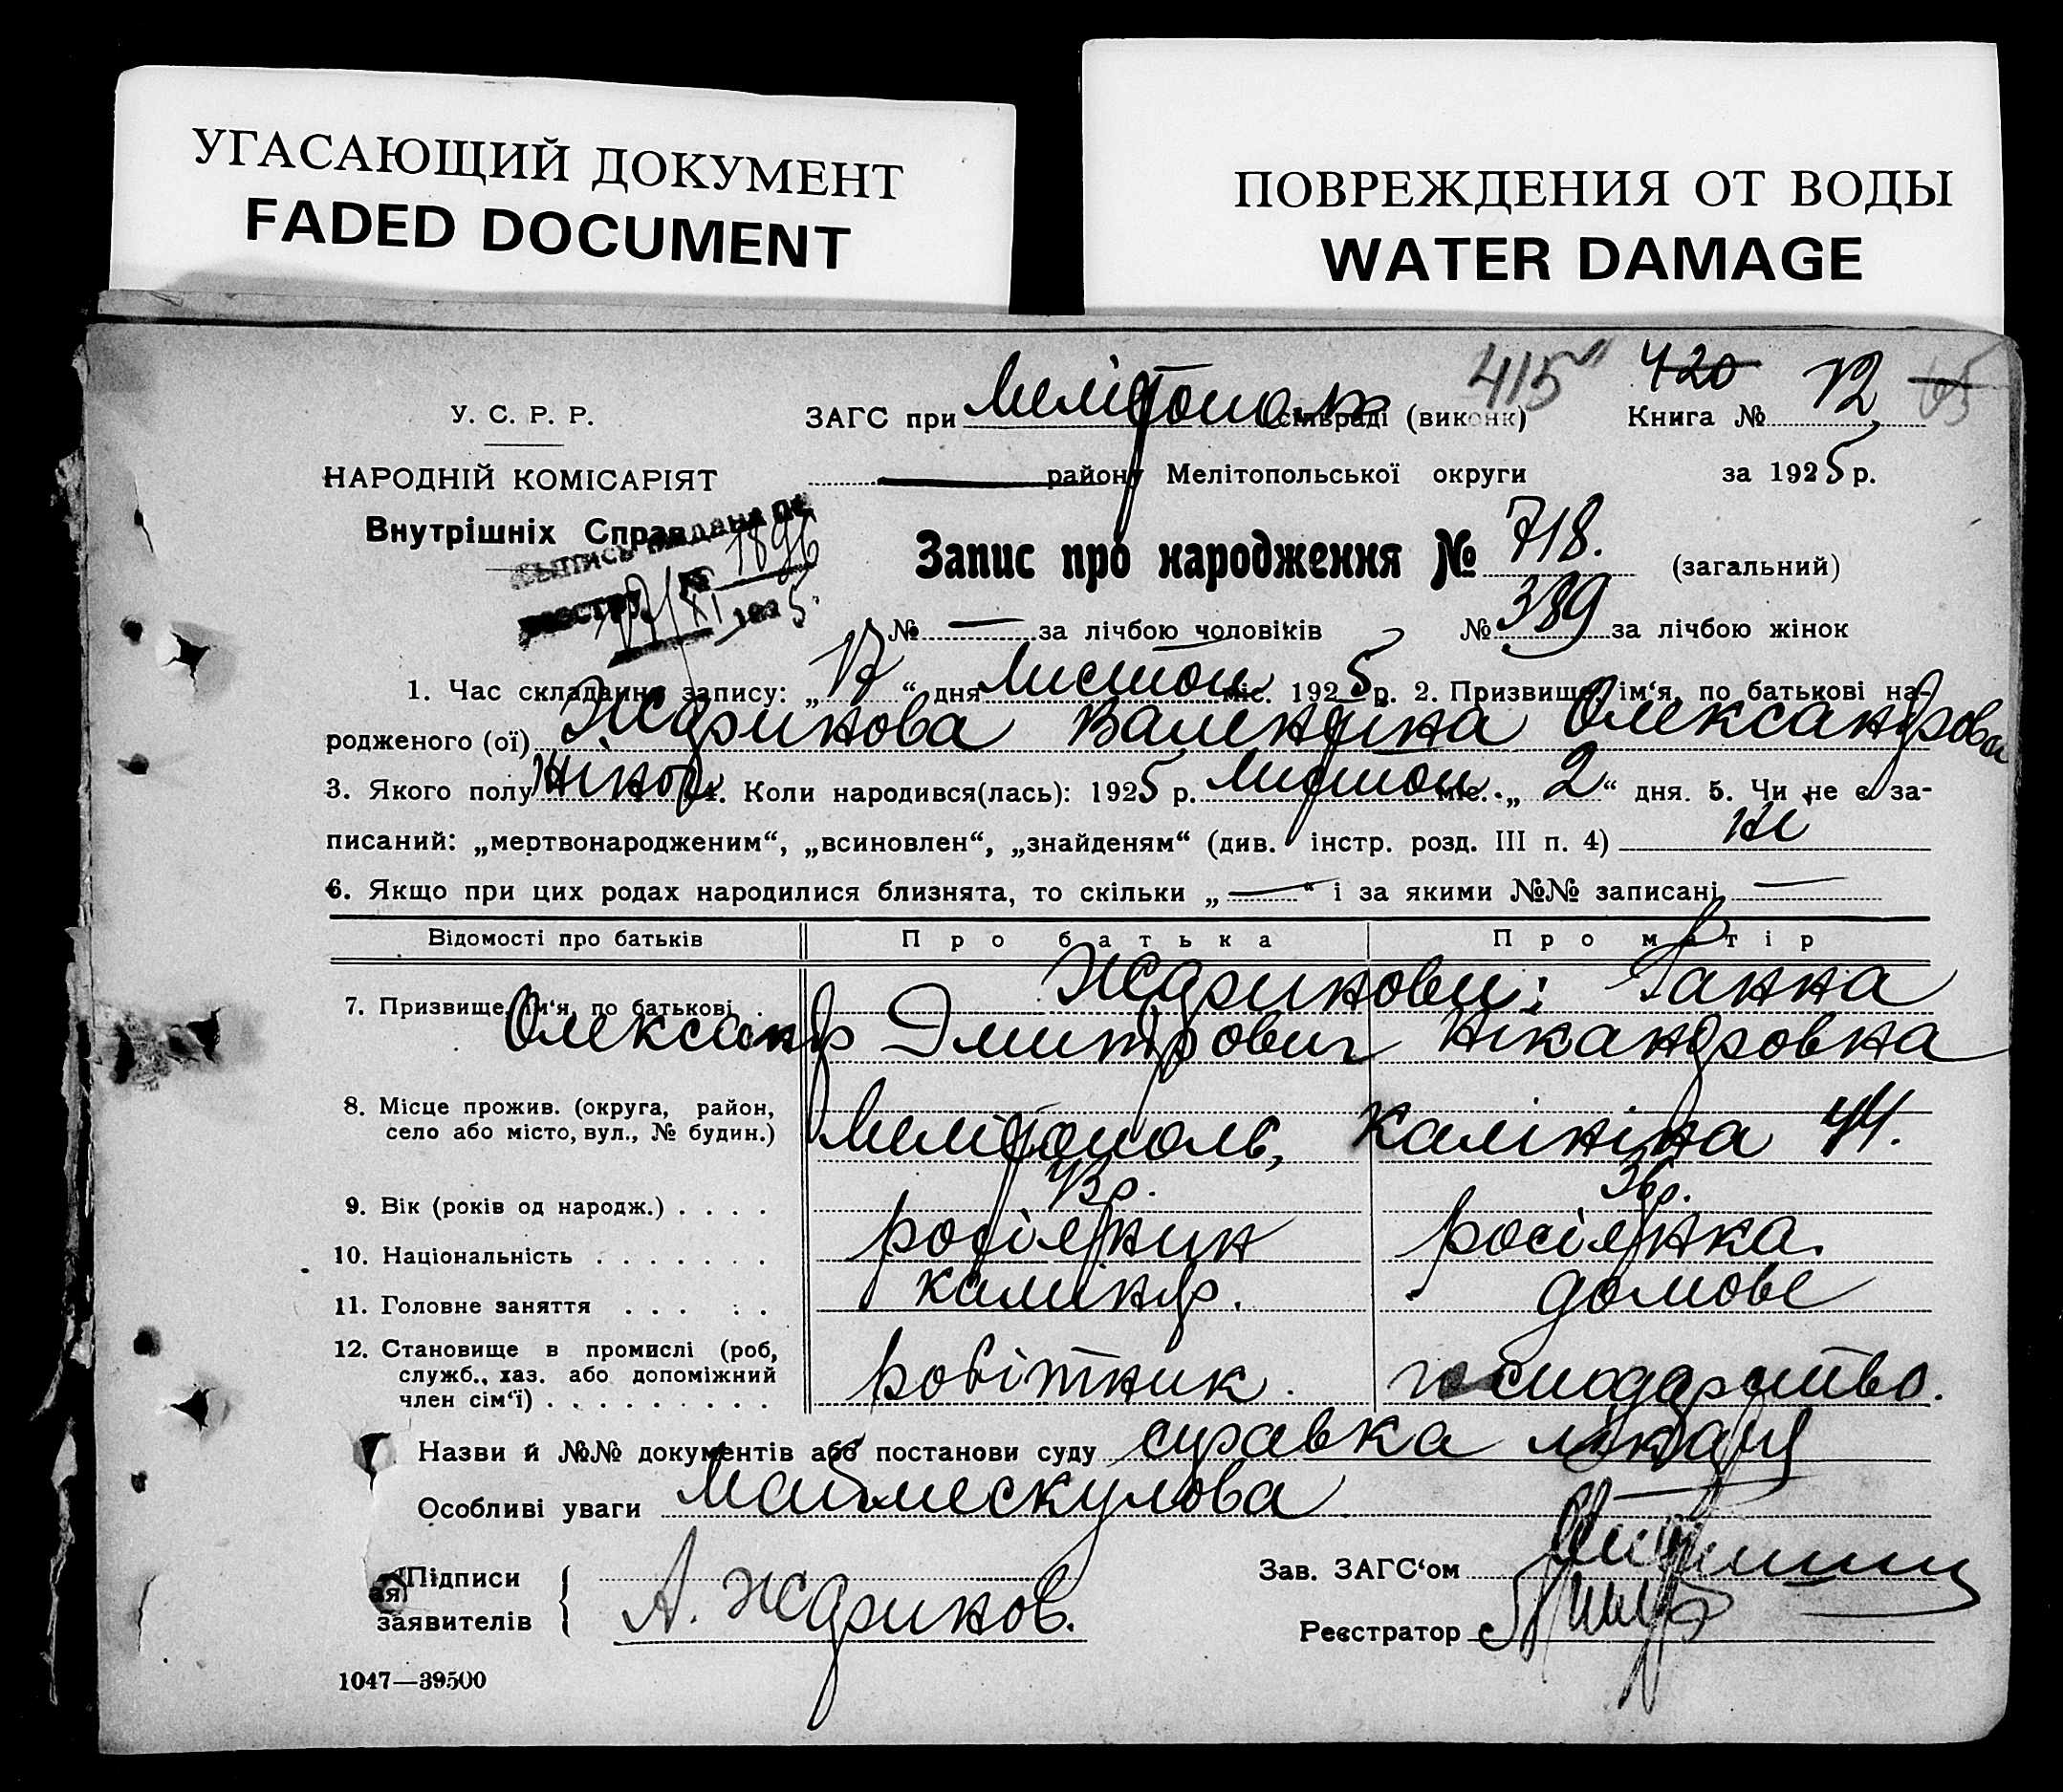 УГАСАЮЩИЙ ДОКУМЕНТ
FADED DOCUMENT
ПОВРЕЖДЕНИЯ ОТ ВОДЫ
WATER DAMAGE
415 420 65
У. С. Р. Р. ЗАГС при Мелітопольск сільраді (виконк) Книга № 12
НАРОДНІЙ КОМІСАРІЯТ району Мелітопольської округи за 1925 р.
Внутрішніх Справ
Выпись выдана по
реестру № 1896
17/XI 1925
Запис про народження № 718. (загальний)
№ — за лічбою чоловіків № 389 за лічбою жінок
1. Час складання запису: „17“ дня Листоп міс. 1925 р. 2. Призвище, ім‘я, по батькові на-
родженого (ої) Ждринова Валентина Олександрова
3. Якого полу жіноч 4. Коли народився(лась): 1925 р. Листоп. міс. „2“ дня. 5. Чи не є за-
писаний: „мертвонародженим“, „всиновлен“, „знайденям“ (див. інстр. розд. III п. 4) ні
6. Якщо при цих родах народилися близнята, то скільки „—“ і за якими №№ записані —
Відомості про батьків Про батька Про матір
7. Призвище, ім‘я, по батькові Ждринови: Ганна
Олександр Дмитрович Нікандровна
8. Місце прожив. (округа, район,
село або місто, вул., № будин.) Мелітополь, Калініна 44.
9. Вік (років од народж.) 43 р. 36 р.
10. Національність росіянин росіянка.
11. Головне заняття домове
12. Становище в промислі (роб,
служб., хаз. або допоміжний
член сім‘ї) робітник. господарство.
Назви й №№ документів або постанови суду справка лікаря
Особливі уваги Маймескулова
Підписи
заявителів А. Ждринов.
Зав. ЗАГС‘ом
Реєстратор
1047—39500